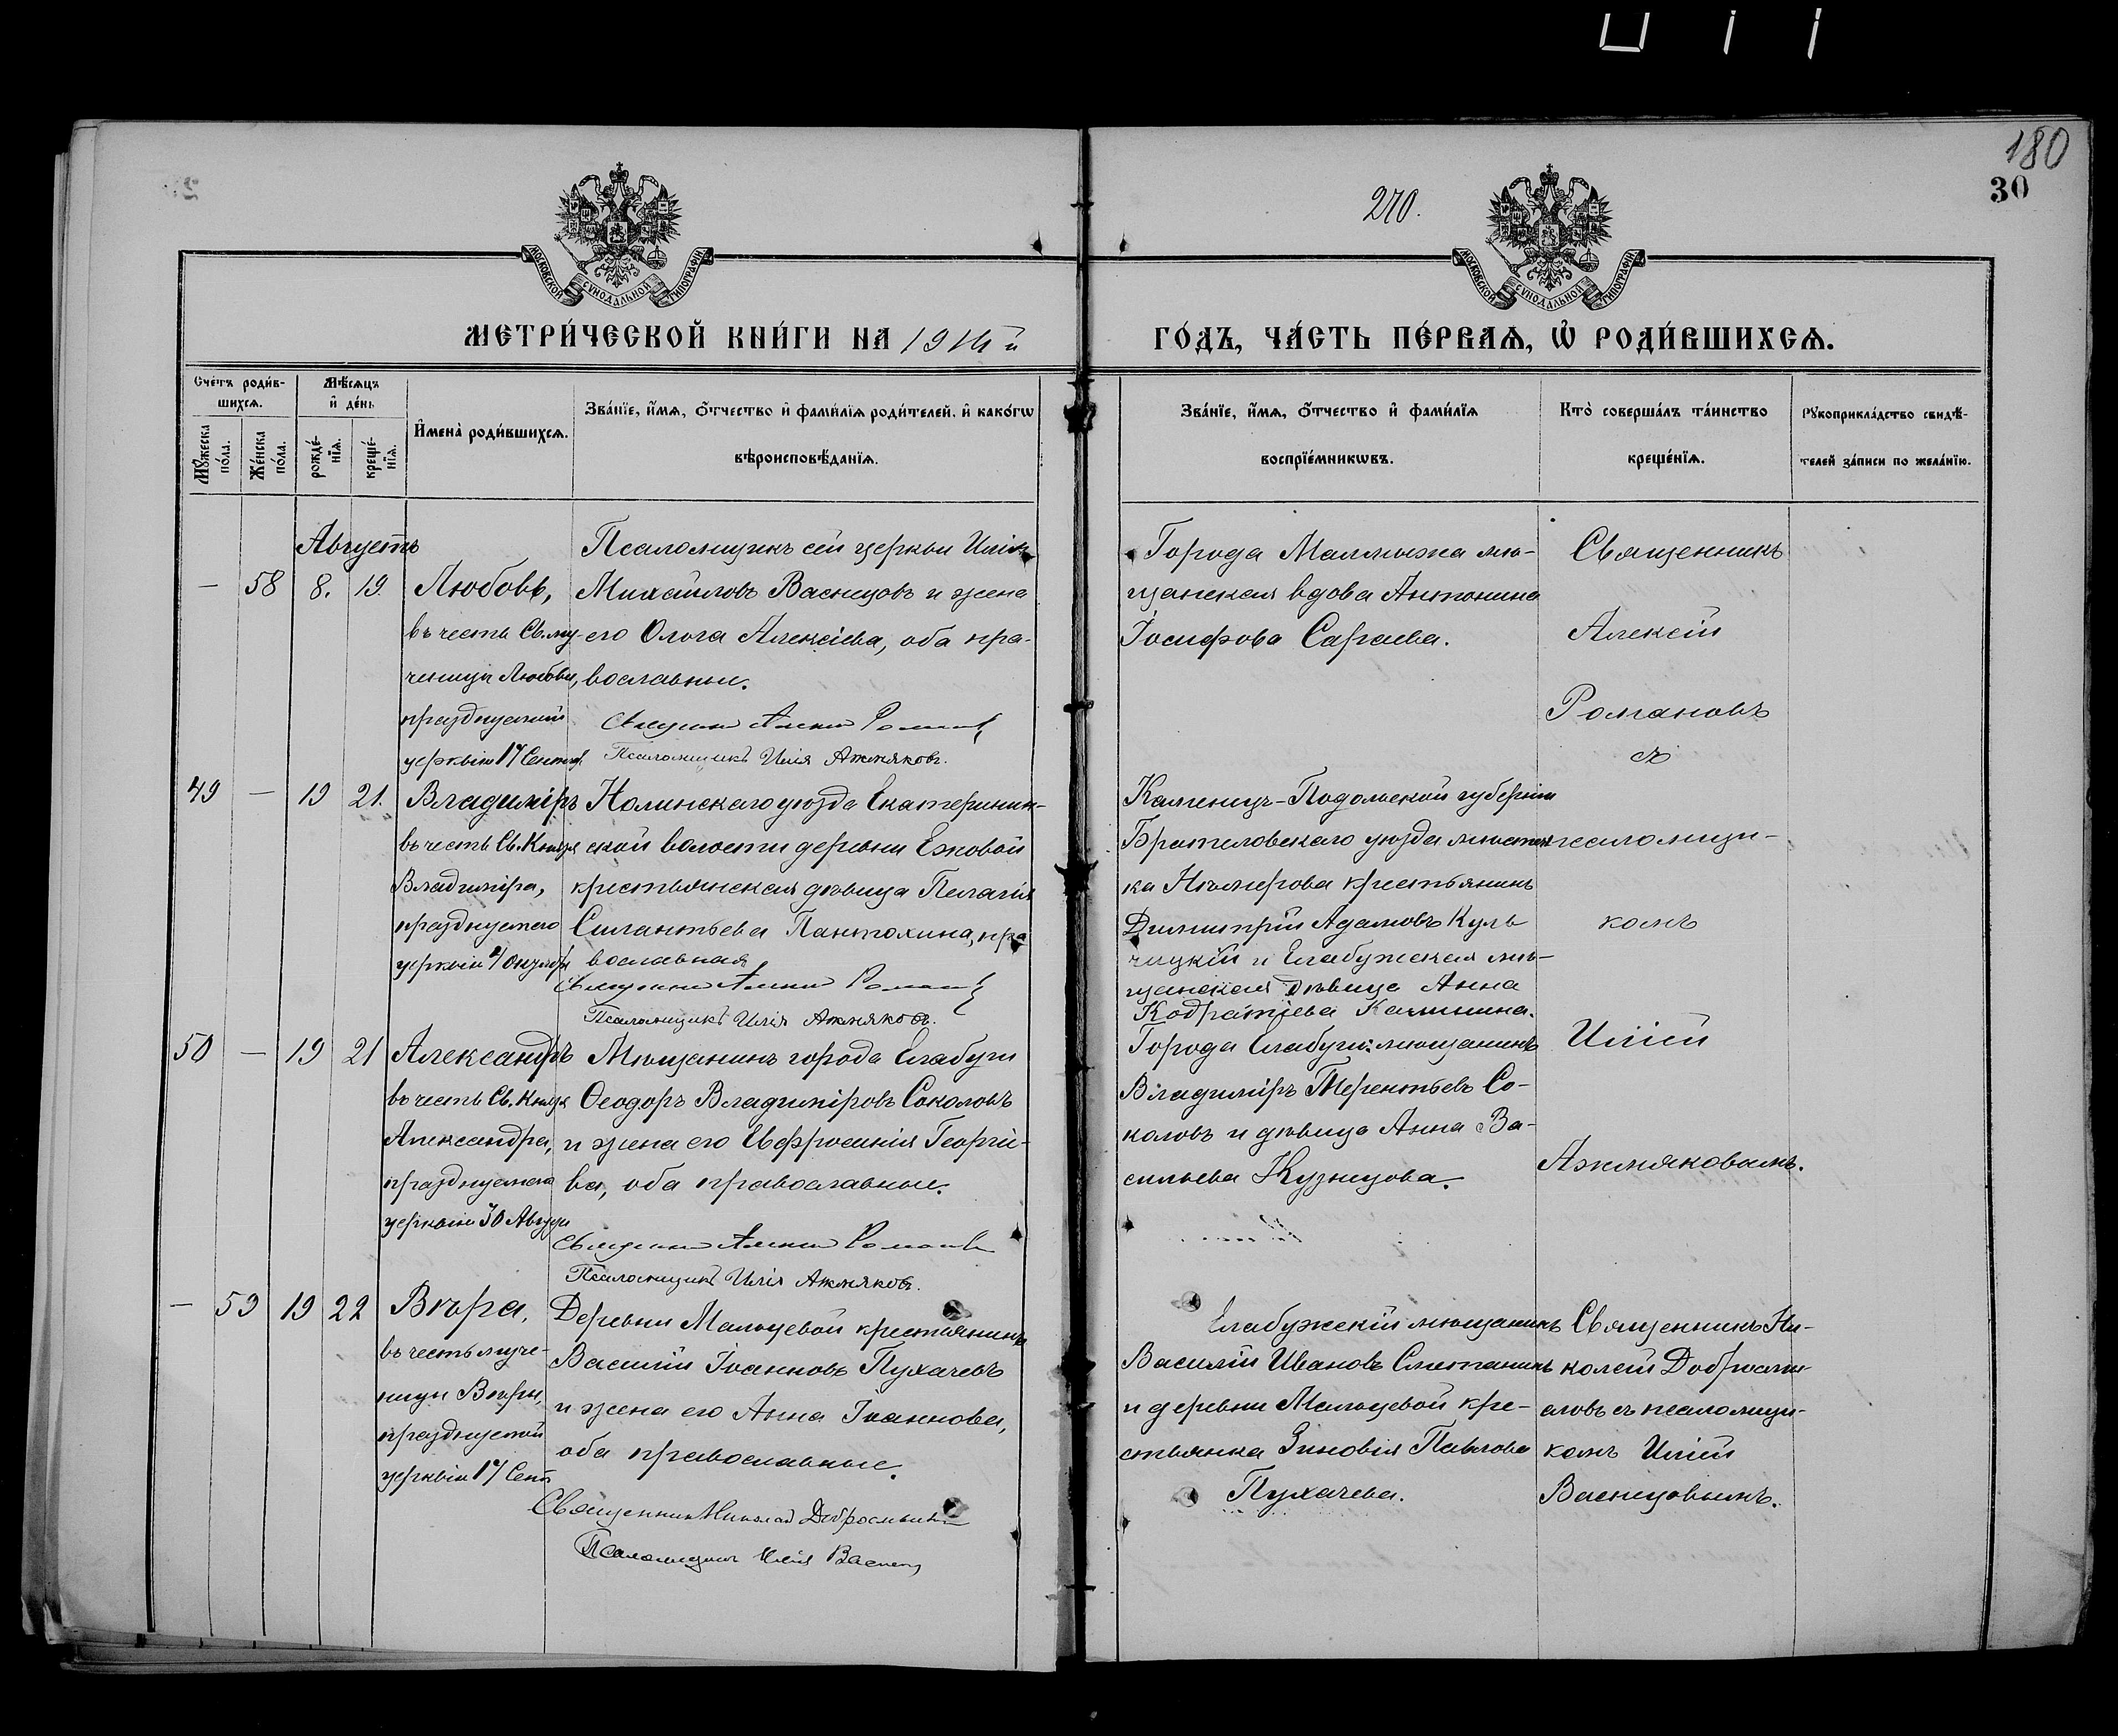 180
30
270.
МОСКОВСКОЙ СѴНОДАЛЬНОЙ ТИПОГРАФІИ
МОСКОВСКОЙ СѴНОДАЛЬНОЙ ТИПОГРАФІИ
МЕТРИ́ЧЕСКОЙ КНИ́ГИ НА 1914 й
ГО́ДЪ, ЧА́СТЬ ПЕ́РВАѦ, Ѡ҆ РОДИ́ВШИХСѦ.
Сче́тъ роди́в-
шихсѧ.
Мꙋ́жеска по́ла.
Же́нска по́ла.
Мѣ́сѧцъ
и҆ де́нь
рожде́-
нїѧ.
креще́-
нїѧ.
И҆мена̀ роди́вшихсѧ.
Зва́нїе, и҆́мѧ, ѻ҆́тчество и҆ фами́лїѧ роди́телей, и҆ како́гѡ
вѣроисповѣ́данїѧ.
Зва́нїе, и҆́мѧ, ѻ҆́тчество и҆ фами́лїѧ
воспрїе́мникѡвъ.
Кто̀ соверша́лъ та́инство
креще́нїѧ.
Рꙋкоприкла́дство свидѣ́-
телей за́писи по жела́нїю.
Августъ
— 58 8. 19.
Любовь,
въ честь Св. му-
ченицы Любви,
празднуемой
церковію 17 Сентяб
Псаломщикъ сей церкви Илія
Михаиловъ Васнецовъ и жена
его Олга Алексіева, оба пра-
вославные.
Священникъ Алексій Романовъ
Псаломщикъ Илія Ажмяковъ.
Города Малмыжа мѣ-
щанская вдова Антонина
Іосифова Сараева.
Священникъ
Алексій
Романовъ
съ
49 — 19 21.
Владиміръ
въ честь Св. Князя
Владиміра,
празднуемаго
церковію 4 Октября
Нолинскаго уѣзда Екатеринин-
ской волости деревни Ежовой
крестьянская дѣвица Пелагія
Силантьева Пантюхина, пра
вославная
Священникъ Алексій Романовъ
Псаломщикъ Илія Ажмяковъ.
Каменец-Подольской губерніи
Брацловскаго уѣзда мѣстеч
ка Немерова крестьянинъ
Димитрій Адамовъ Куль
чицкій и Елабужская мѣ-
щанская дѣвица Анна
Кодратіева Калинина.
псаломщи-
комъ
50 — 19 21
Александръ
въ честь Св. Князя
Александра,
празднуемаго
церковію 30 Августа
Мѣщанинъ города Елабуги
Ѳеодоръ Владиміровъ Соколовъ
и жена его Евфросинія Георгіе-
ва, оба православные.
Священникъ Алексій Романовъ
Псаломщикъ Илія Ажмяковъ.
Города Елабуги: мѣщанинъ
Владиміръ Терентьевъ Со-
коловъ и дѣвица Анна Ва-
сильева Кузнецова.
Иліей
Ажмяковымъ.
— 59 19 22
Вѣра,
въ честь муче-
ницы Вѣры,
празднуемой
церковію 17 Сент
Деревни Мальцевой крестьянинъ
Василій Іоанновъ Пухачевъ
и жена его Анна Іоаннова,
оба православные.
Священникъ Николай Добросмысловъ
Псаломщикъ Илія Васнецов
Елабужскій мѣщанинъ
Василій Ивановъ Сметанинъ
и деревни Мальцевой кре-
стьянка Зиновія Павлова
Пухачева.
Священникъ Ни-
колай Добросмы-
словъ съ псаломщи-
комъ Иліей
Васнецовымъ.